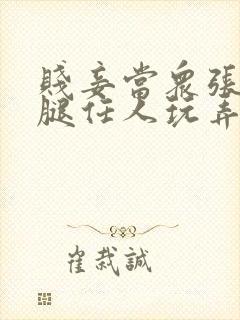 賤妾當眾張
腿任人玩弄
崔栽誠